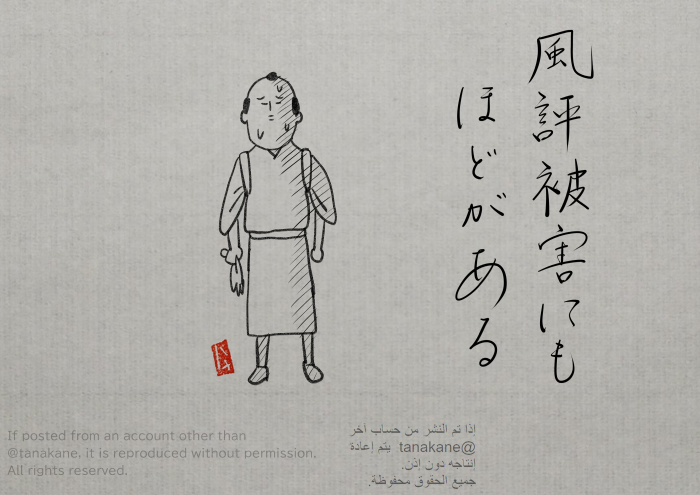 風評被害にも
ほどがある
If posted from an account other than
@tanakane, it is reproduced without permission.
All rights reserved.
إذا تم النشر من حساب آخر
@tanakane يتم إعادة
إنتاجه دون إذن.
جميع الحقوق محفوظة.